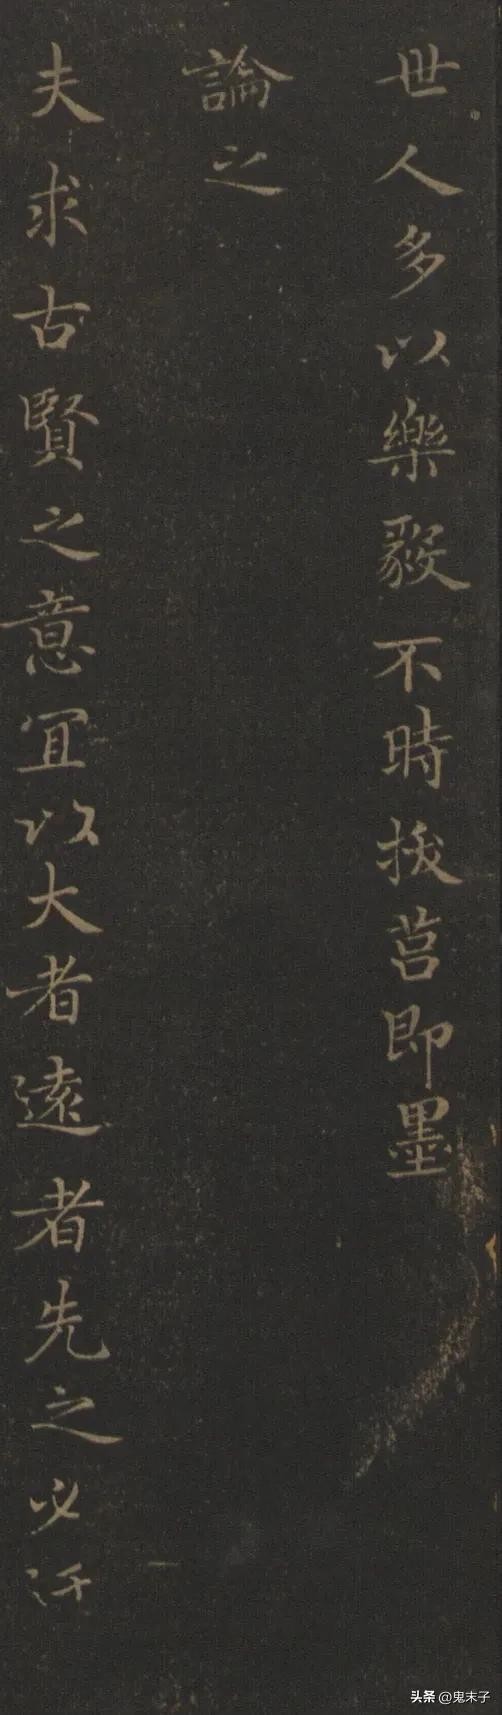 世人多以樂毅不時拔莒即墨
論之
夫求古賢之意宜以大者遠者先之必迂
头条 @鬼末子